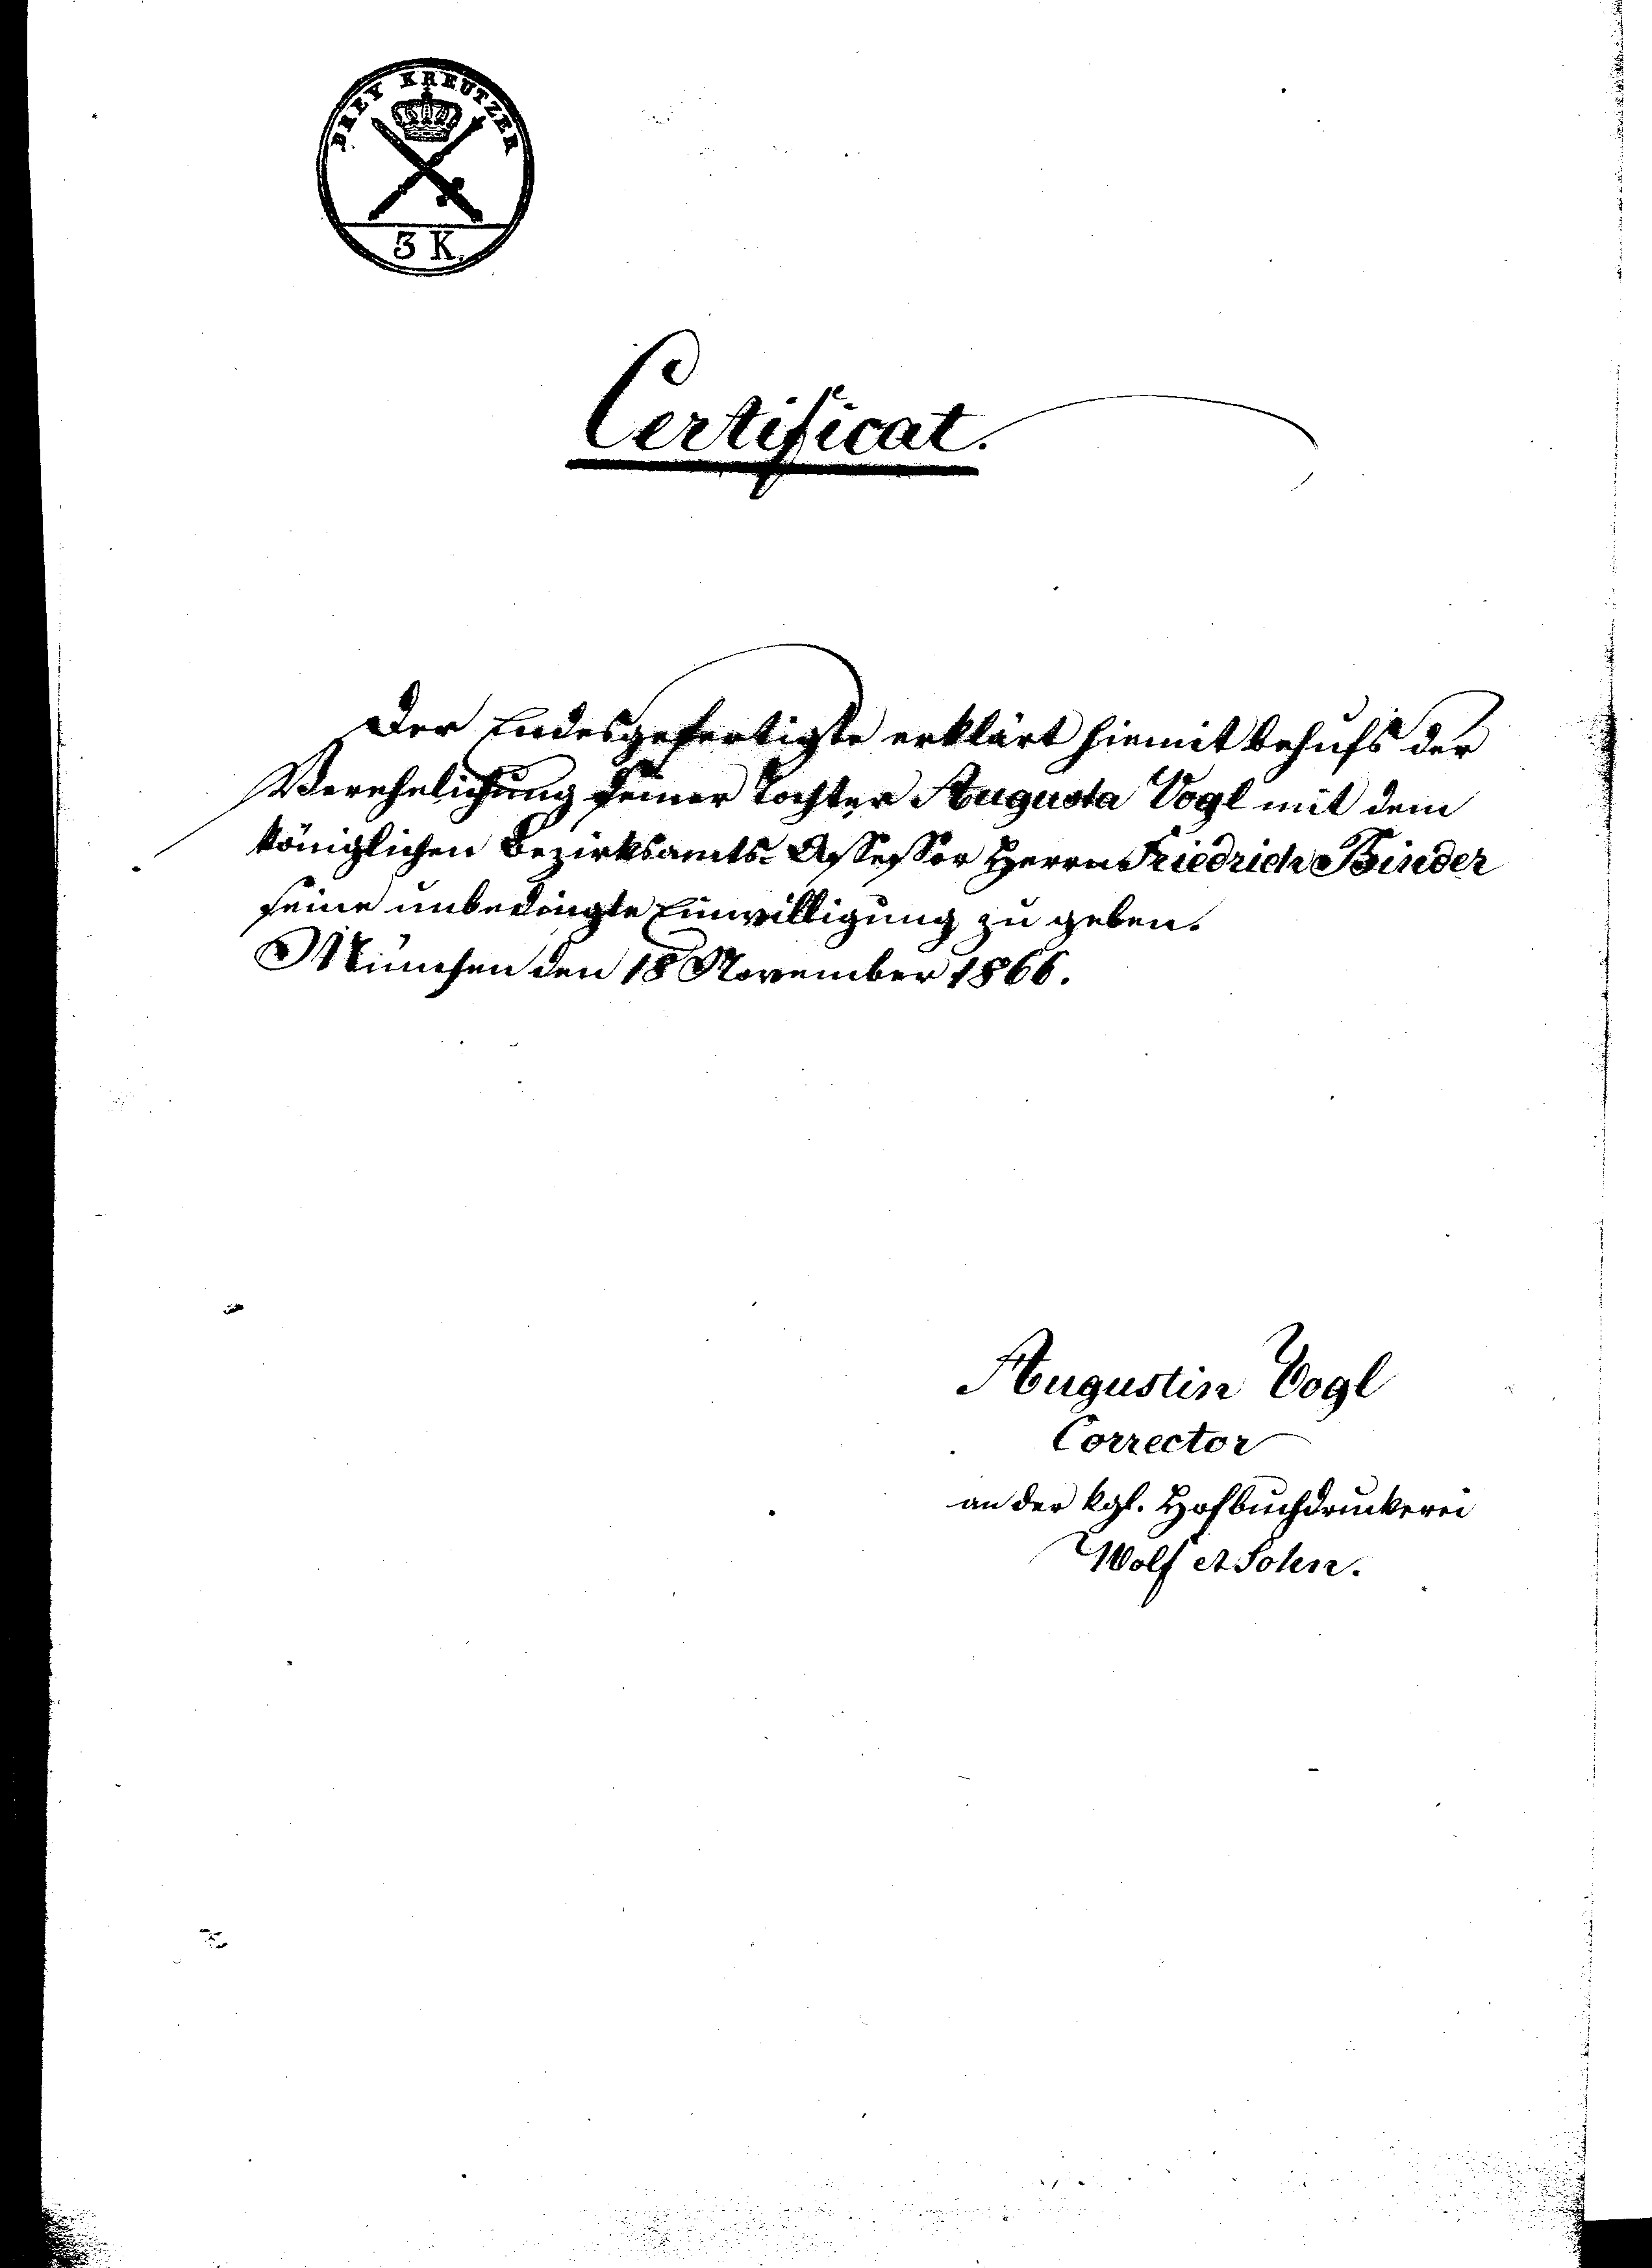 DREY KREUTZER
3 K.
Certificat.
Der Endesgefertigte erklärt hiemit behufs der
Verehelichung seiner Tochter Augusta Vogl mit dem
königlichen Bezirksamts-Assessor Herrn Friedrich Binder
seine unbedingte Einwilligung zu geben.
München den 18 November 1866.
Augustin Vogl
Corrector
an der kgl. Hofbuchdruckerei
Wolf et Sohn.